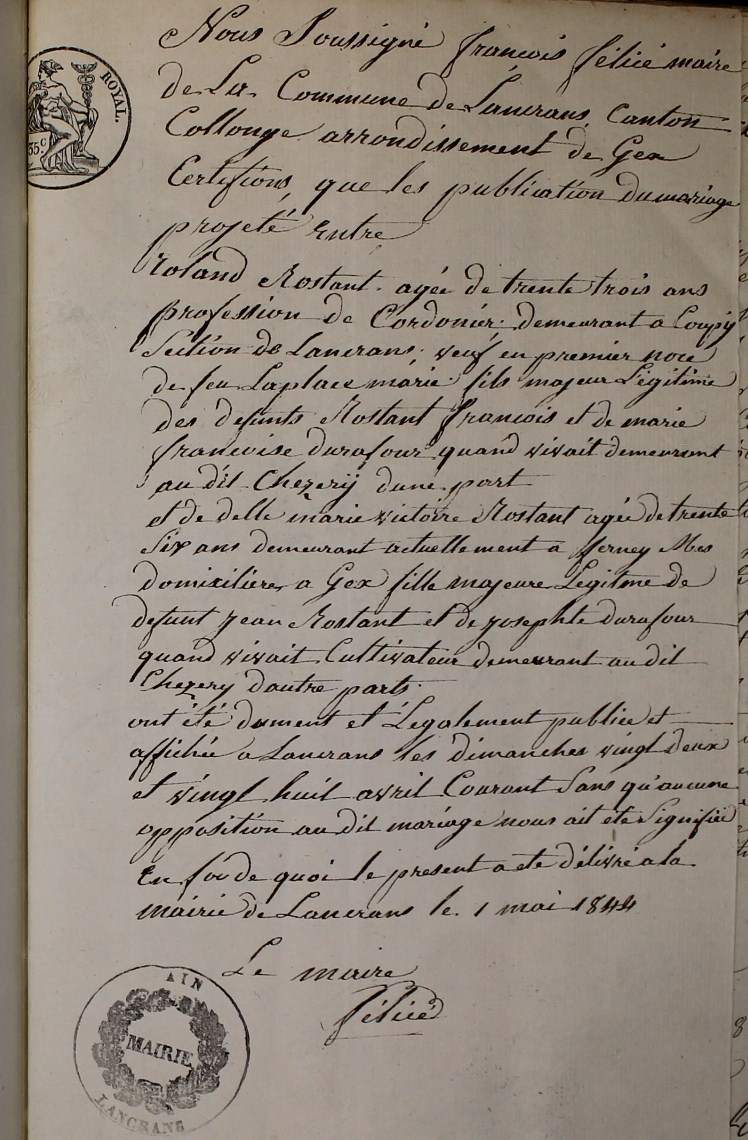 ROYAL.
35.c
Nous Soussigné françois félicé maire
de La Commune de Lancrans Canton
Collonge arrondissement de Gex
Certifions, que les publication du mariage
projeté entre
Roland Rostant agée de trente trois ans
profession de Cordonier demeurant a Coupÿ
Section de Lancrans, veuf en premier noce
de feu Laplace marie fils majeur Légitime
des defunts Rostant francois et de marie
francoise durafour quand vivait demeurant
au dit Chezerÿ dune part
et de delle marie victoire Rostant agée de trente
Six ans demeurant actuellement a ferney Mes
domiciliere a Gex fille majeure Legitme de
defunt Jean Rostant et de josephte durafour
quand vivait Cultivateur demeurant au dit
Chezery dautre parts
ont été dument et Légalement publie et
affichée a Lancrans les dimanches vingt deux
et vingt huit avril Courant Sans qu'aucune
opposition au dit mariage nous ait été Signifié
En foi de quoi le present a ete délivré a la
mairie de Lancrans le 1 mai 1844
Le maire
félicé
AIN
MAIRIE
LANCRANS